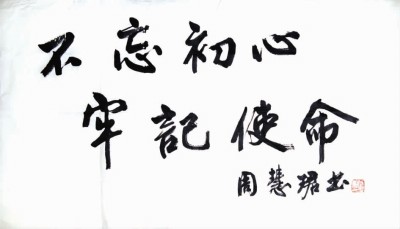 不忘初心
牢記使命
周慧珺书